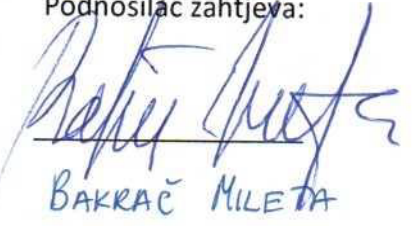 Podnosilac zahtjeva:
BAKRAČ MILETA